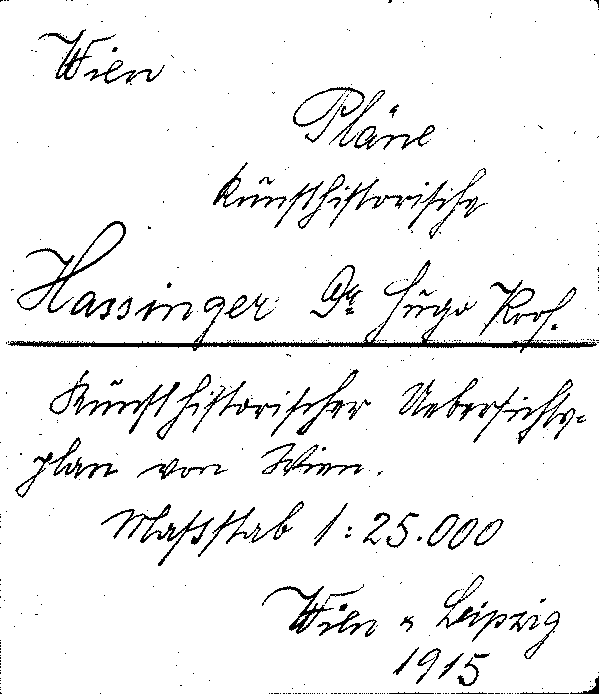 Wien
Pläne
Kunsthistorische
Hassinger Dr. Hugo Prof.
Kunsthistorischer Uebersichts-
plan von Wien.
Massstab 1:25.000
Wien u Leipzig
1915